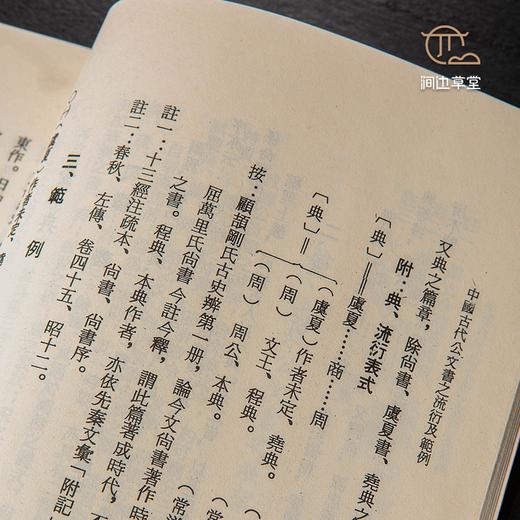 澗边草堂
中國古代公文書之流衍及範例
又典之篇章，除尙書、虞夏書、堯典之
附：典、流衍表式
〔典〕＝虞夏……商……周
〔典〕＝
（虞夏）作者未定、堯典。
（周）　文王、程典。
（周）　周公、本典。
按：顧頡剛氏古史辨第一册，論今文尙書著作時
屈萬里氏尙書今註今釋，謂此篇著成時代，
之書。程典、本典作者，亦依先案文彙「附記
註一：十三經注疏本、尙書、尙書序。
註二：春秋、左傳、卷四十五、昭十二。
三、範例
東作。